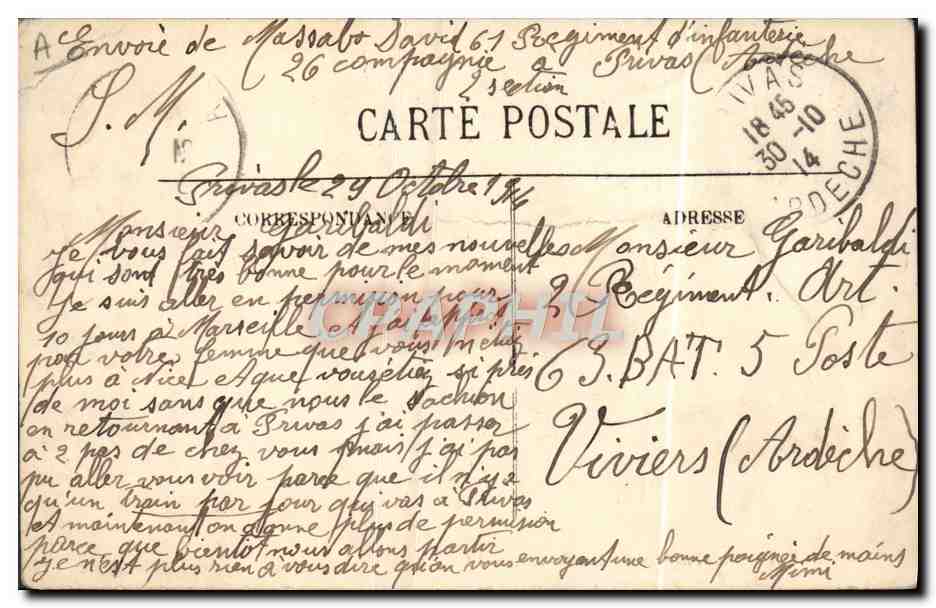 Envoie de Massabo David 61 Regiment d'infanterie
26 compagnie a Privas (Ardèche
2 section
S. M.
CARTE POSTALE
IVAS
18 45
30 -10
14
RDECHE
Privas le 29 Octobre 1914
CORRESPONDANCE
ADRESSE
Monsieur Garibaldi
Je vous fait savoir de mes nouvelles
qui sont très bonne pour le moment
Je suis aller en permision pour
10 jours à Marseille et j'ai appris
par votre femme que vous n'etiez
plus à Nice et que vous etiez si près
de moi sans que nous le sachion
en retournant à Privas j'ai passer
à 2 pas de chez vous mais j'ai pas
pu aller vous voir parce que il n'y a
qu'un train par jour qui vas à Privas
et maintenant on donne plus de permision
parce que bientôt nous allons partir
Je n'est plus rien à vous dire qu'on vous envoyant une bonne poignée de mains
Mimi
Monsieur Garibaldi
2 Régiment. Art.
63. BAT. 5 Poste
Viviers (Ardèche)
CPAPHIL